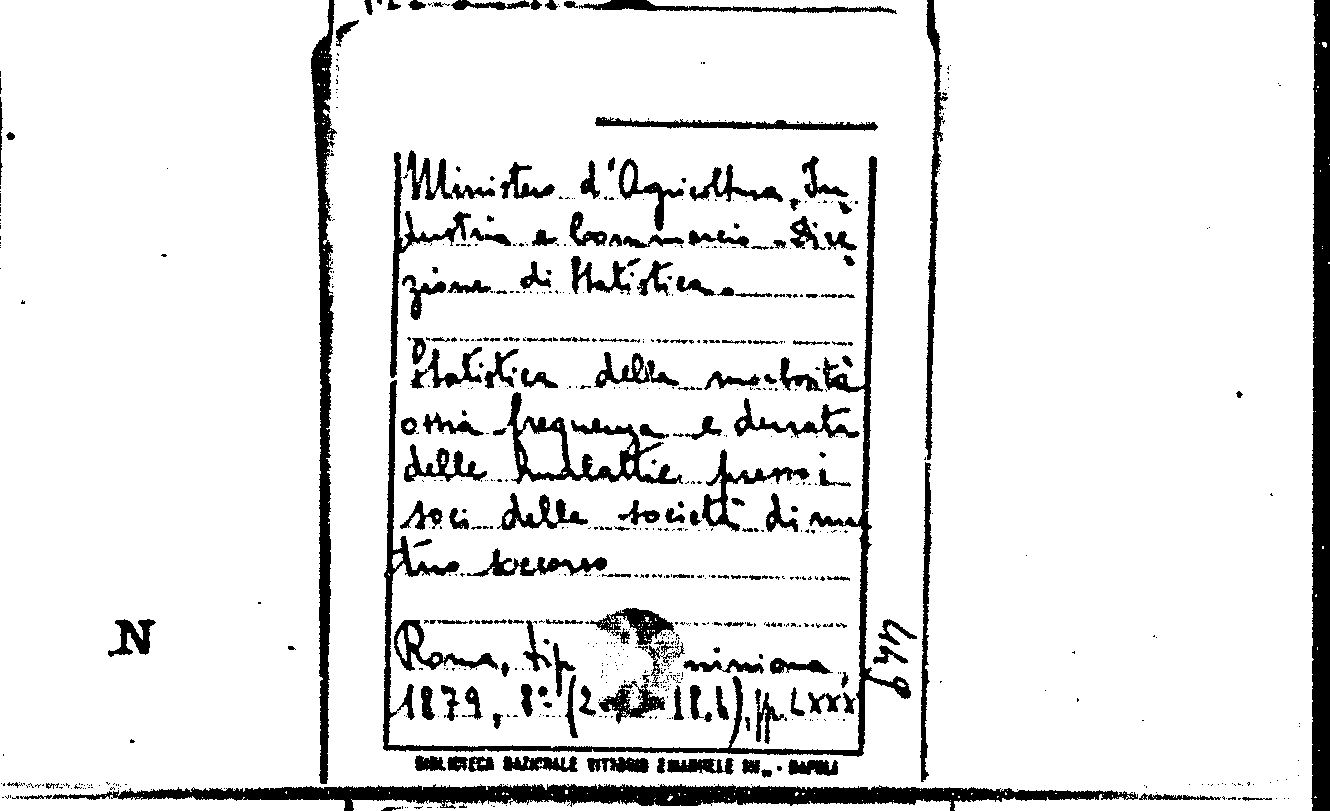 Ministero d'Agricoltura, In
dustria e Commercio - Dire
zione di Statistica.
Statistica della morbosità
ossia frequenza e durata
delle malattie presso i
soci delle società di mu
tuo soccorso
N
Roma, tip
1879, 8° (2 18,6), pp. LXXX
BIBLIOTECA NAZIONALE VITTORIO EMANUELE III - NAPOLI